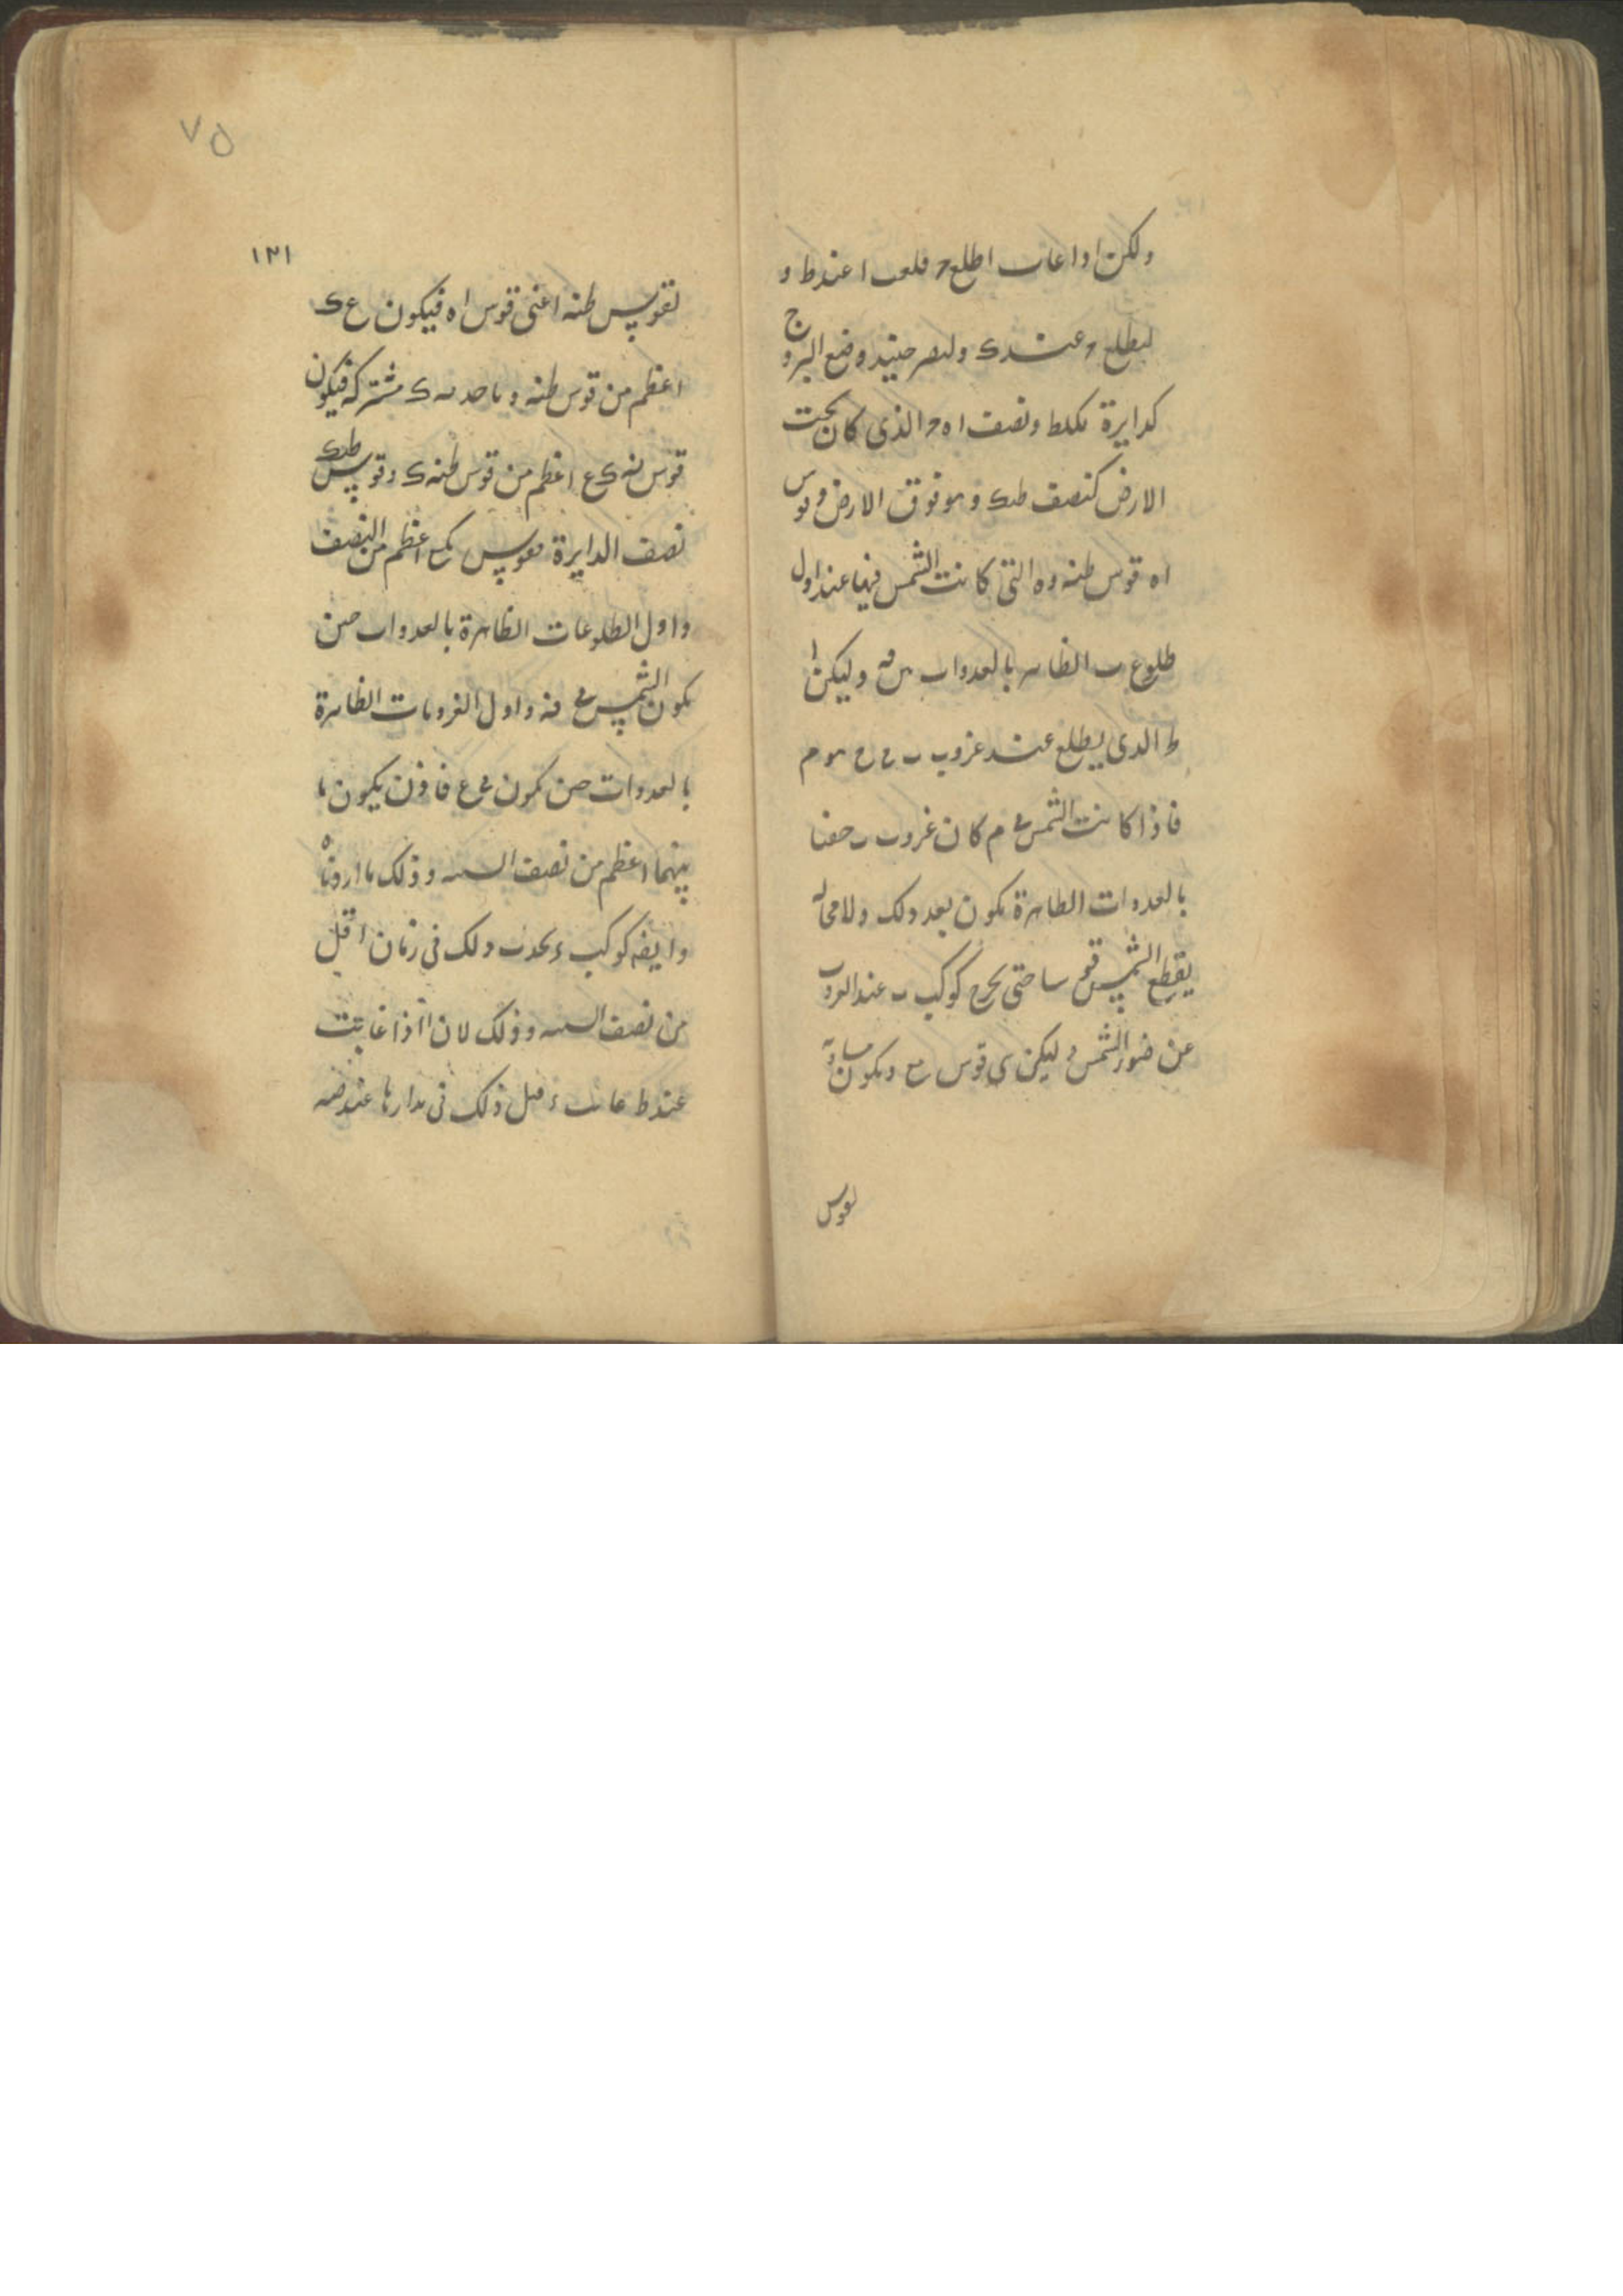 ولكن اذا غاب ا طلع ح فلىعب ا عند ط و
ليطلع ح عند ك وليصر حينئذ وضع البروج
كدايرة ىكلط ونصف ا ه ح الذى كان تحت
الارض كنصف طىك وهو فوق الارض وقوس
ا ه قوس طنه و ه التى كانت الشمس فيها عند اول
طلوع ب الظاهر بالغدوات وليكن
ط الذى يطلع عند غروب ب هو م
فاذا كانت الشمس فى م كان غروب ب خفيا
بالغدوات الظاهرة يكون بعد ذلك ولا محاله
يقطع الشمس قوسا حتى يخرج كوكب ب عند الغروب
عن ضوء الشمس وليكن هى قوس مع ويكون مساويه
لقوس
٧٥
١٢١
لقوس طنه اعنى قوس ا ه فيكون ع ك
اعظم من قوس طنه وناخذ نه ك مشتركة فيكون
قوس نه ك ع اعظم من قوس طنه ك وقوس طىك
نصف الدايرة فقوس اعظم من النصف
واول الطلوعات الظاهرة بالغدوات حين
يكون الشمس فى نه واول الغروبات الظاهرة
بالغدوات حين تكون فى ع فاذن يكون ما
بينهما اعظم من نصف السنه وذلك ما اردناه
وايضا كوكب ء يحدث ذلك فى زمان اقل
من نصف السنه وذلك لان ا اذا غابت
عند ط غابت ء قبل ذلك فى مدارها عند صه